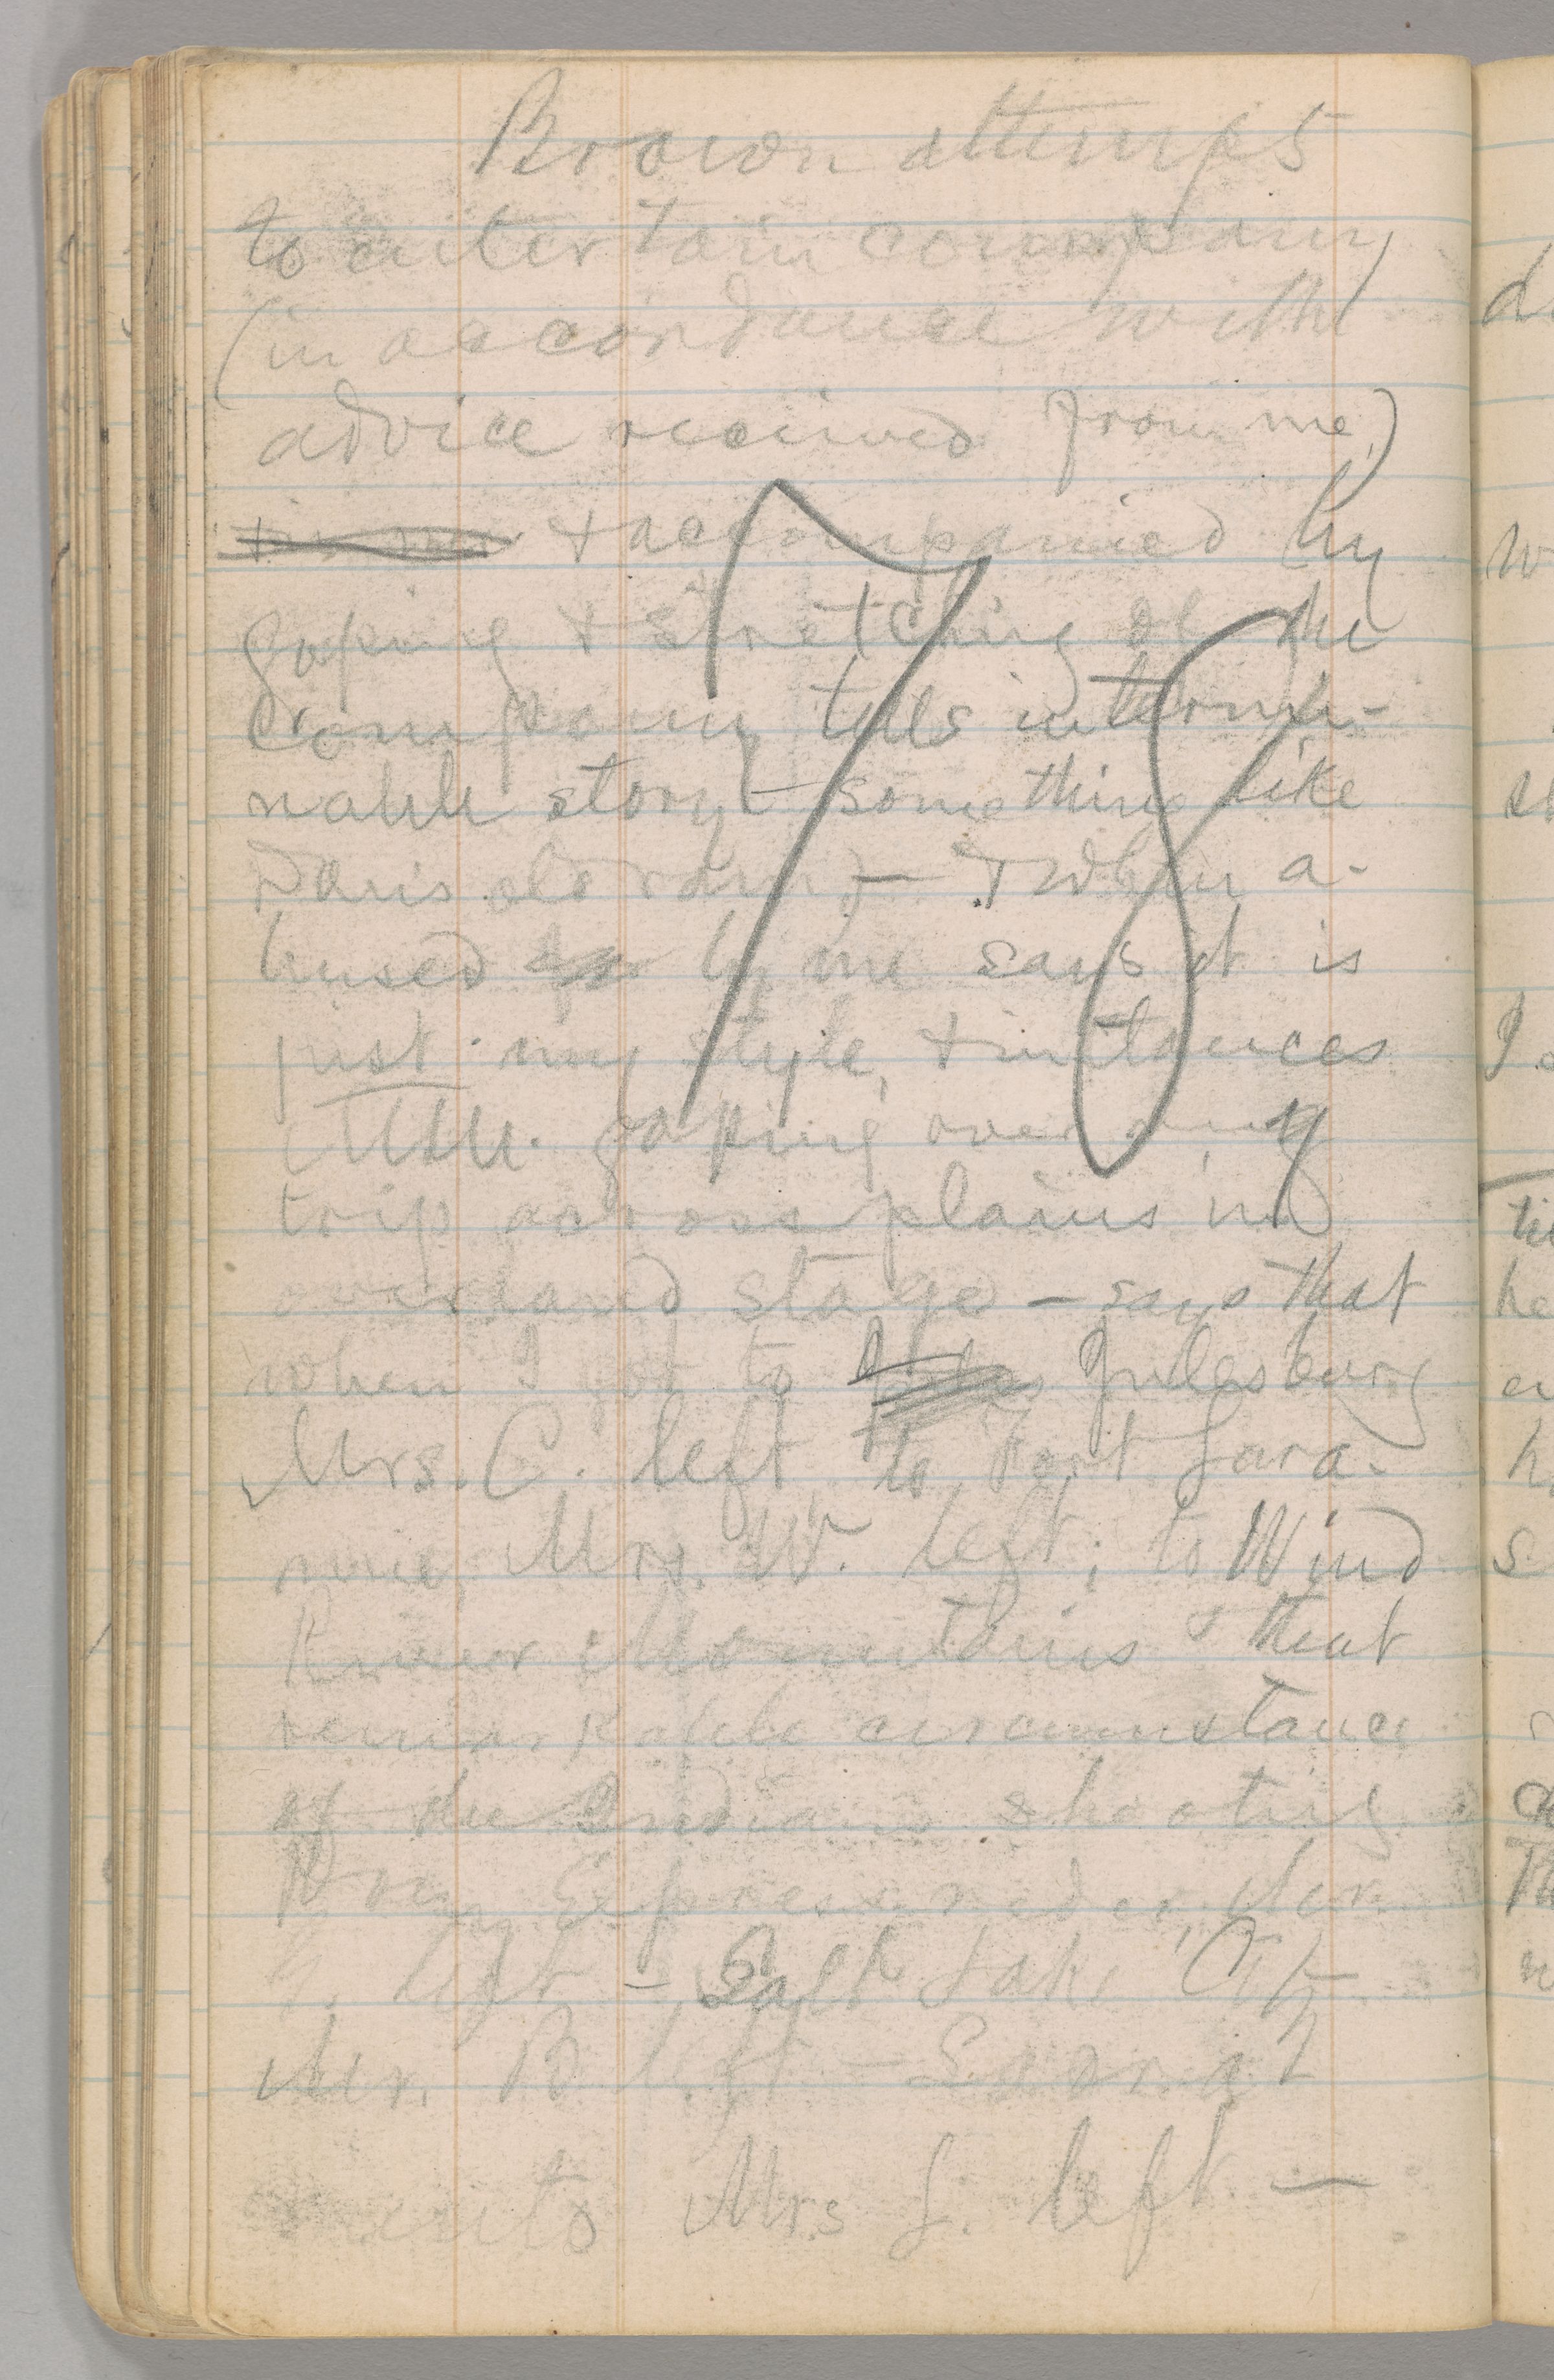 Brown attempts
to entertain company
(in accordance with
advice received from me,)
+ accompanied by
gaping + stretching of the
company tells intermi-
nable story—something like
old ram)— + when a-
bused by me says it is
just my style, + instances
gaping over my
trip across plains in
overland stage — says that
when I got to Julesburg
Mrs. C. left, to Fort Lara-
mie, Mrs. W. left; to Wind
River Mountains + that
remarkable circumstance
of the Indians shooting
Pony Express rider, Mr.
G. left — Salt Lake City
Mr. B left — Sacra
mento Mrs L. left —
78